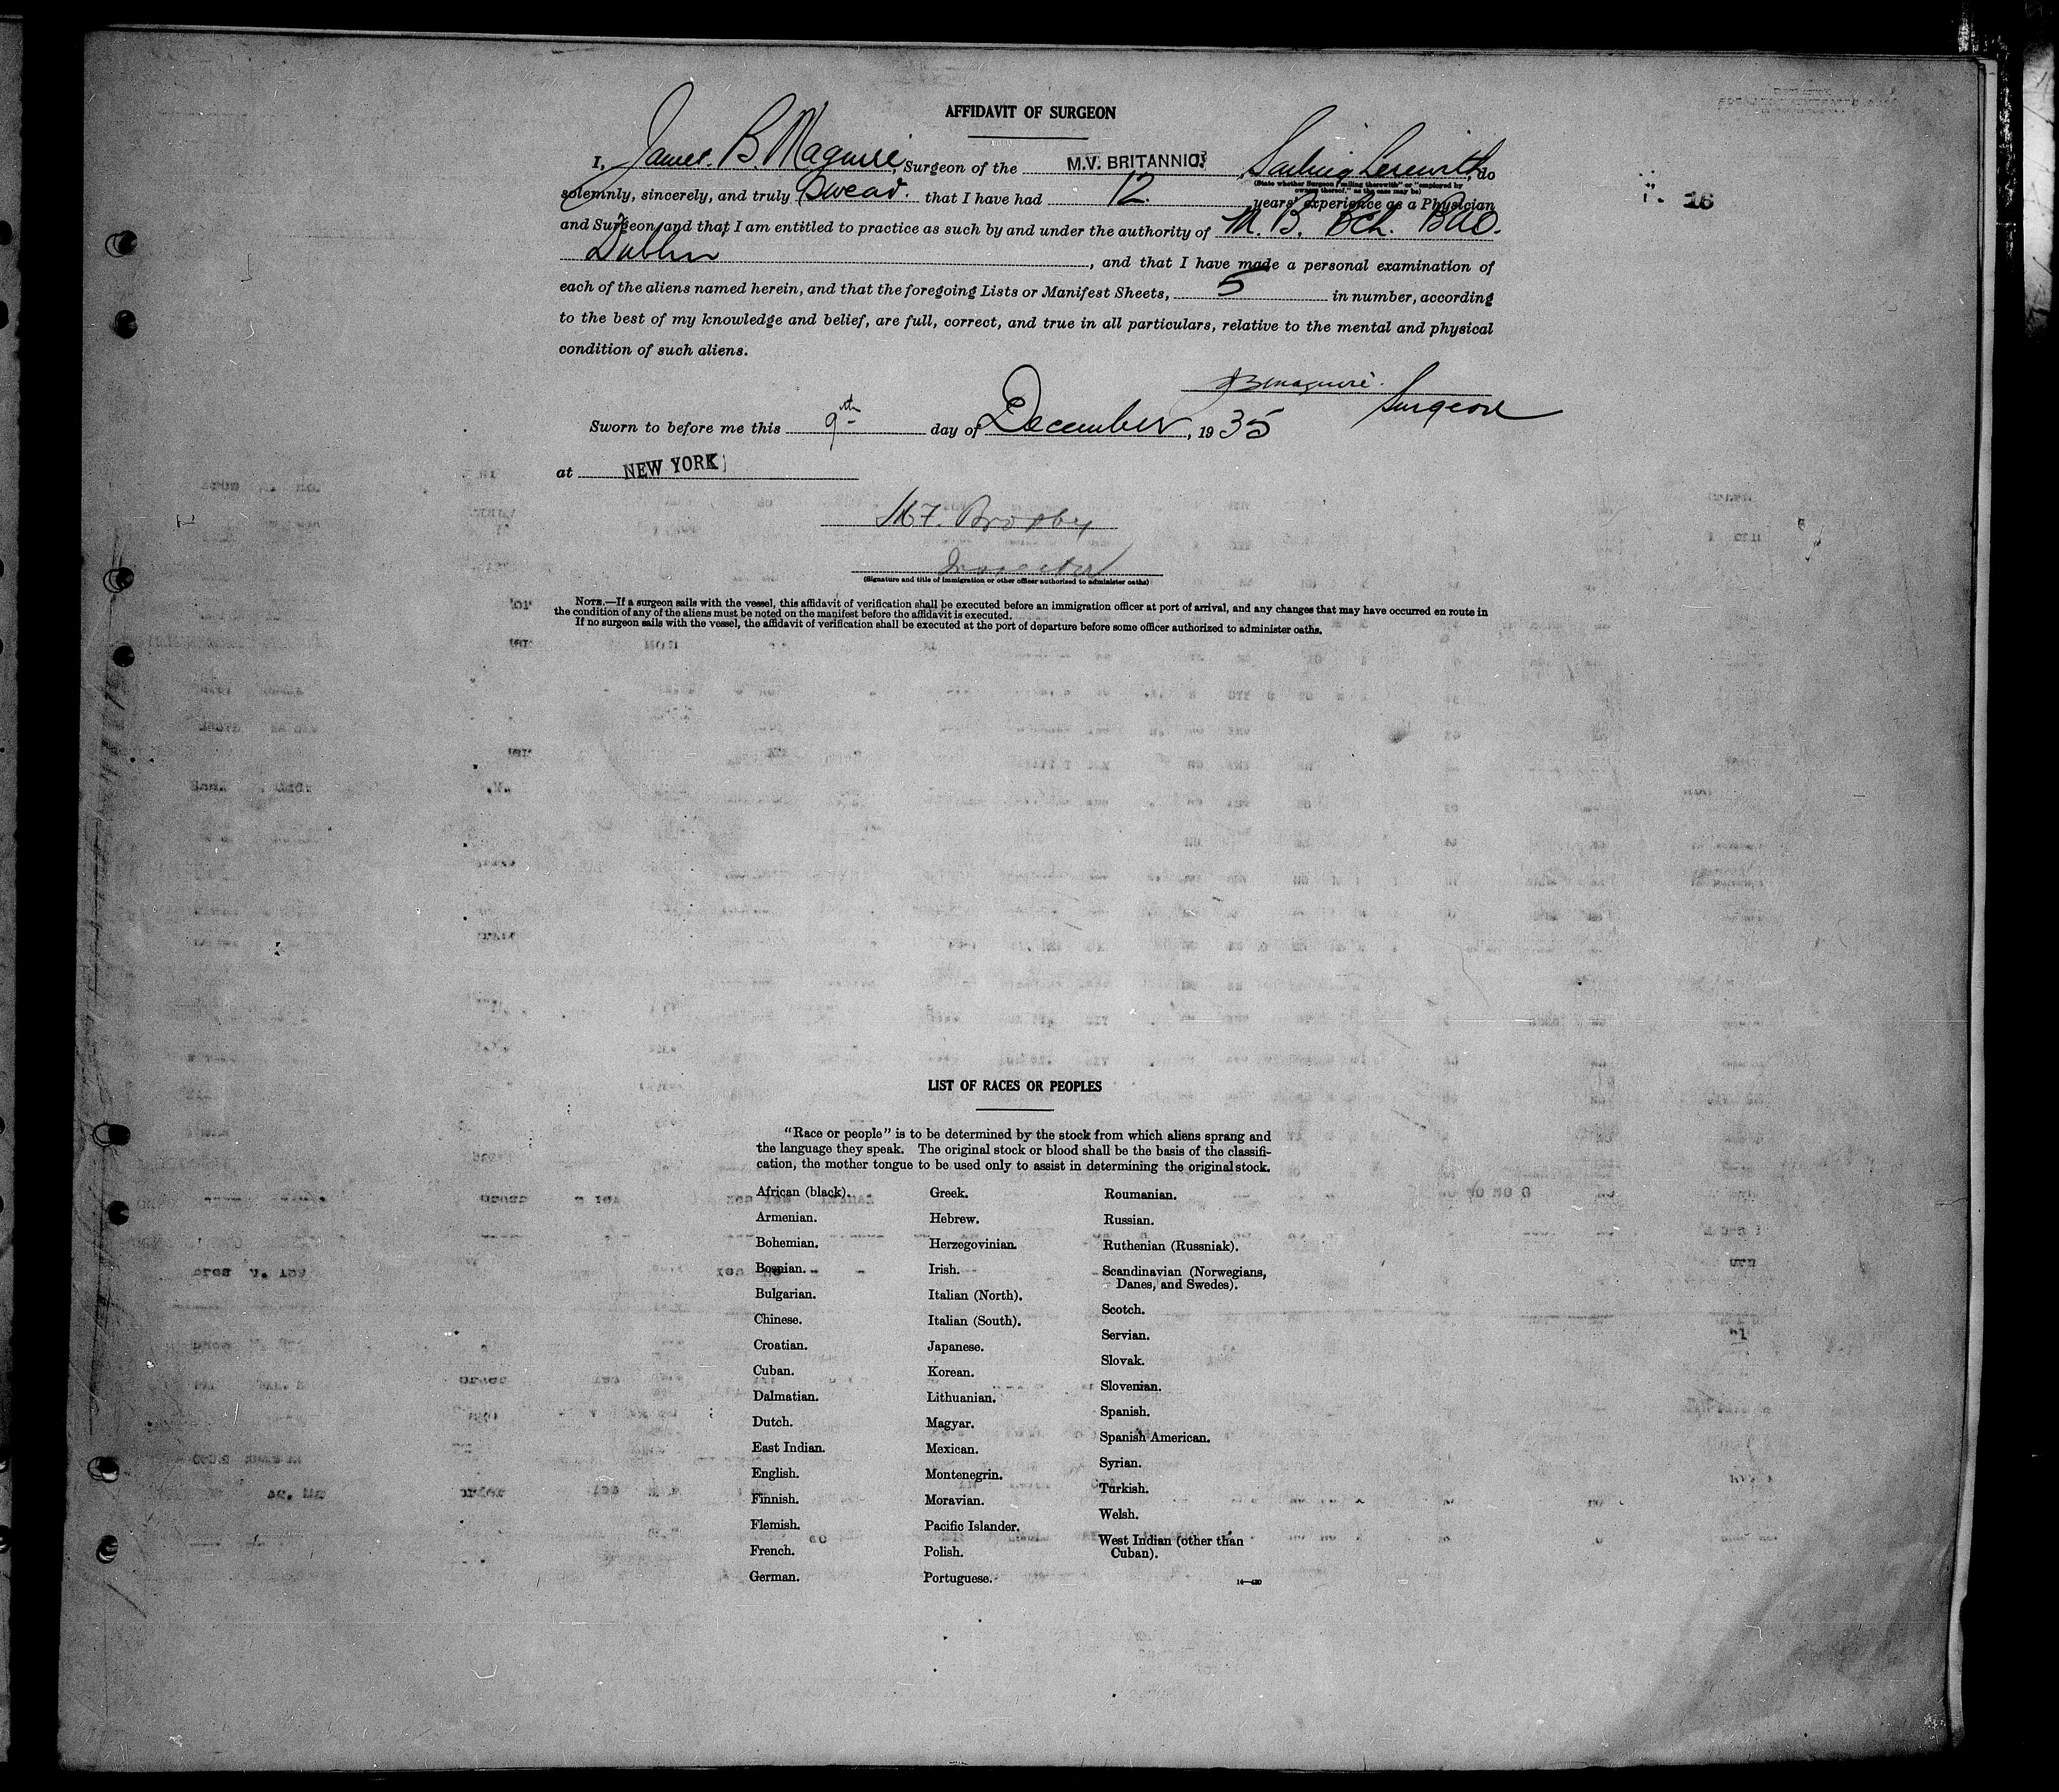 AFFIDAVIT OF SURGEON
I, James B. Maguire, Surgeon of the M.V. BRITANNIC. Sailing herewith, do
(State whether Surgeon "sailing therewith" or "employed by owners thereof," as the case may be)
solemnly, sincerely, and truly Swear. that I have had 12 years' experience as a Physician
and Surgeon, and that I am entitled to practice as such by and under the authority of M.B. BCh. BAO.
Dublin, and that I have made a personal examination of
each of the aliens named herein, and that the foregoing Lists or Manifest Sheets, 5 in number, according
to the best of my knowledge and belief, are full, correct, and true in all particulars, relative to the mental and physical
condition of such aliens.
JBMaguire.
Surgeon
Sworn to before me this 9th day of December, 1935
at NEW YORK
Inspector
(Signature and title of immigration or other officer authorized to administer oaths)
NOTE.—If a surgeon sails with the vessel, this affidavit of verification shall be executed before an immigration officer at port of arrival, and any changes that may have occurred en route in
the condition of any of the aliens must be noted on the manifest before the affidavit is executed.
If no surgeon sails with the vessel, the affidavit of verification shall be executed at the port of departure before some officer authorized to administer oaths.
16
LIST OF RACES OR PEOPLES
"Race or people" is to be determined by the stock from which aliens sprang and
the language they speak. The original stock or blood shall be the basis of the classifi-
cation, the mother tongue to be used only to assist in determining the original stock.
African (black).
Armenian.
Bohemian.
Bosnian.
Bulgarian.
Chinese.
Croatian.
Cuban.
Dalmatian.
Dutch.
East Indian.
English.
Finnish.
Flemish.
French.
German.
Greek.
Hebrew.
Herzegovinian.
Irish.
Italian (North).
Italian (South).
Japanese.
Korean.
Lithuanian.
Magyar.
Mexican.
Montenegrin.
Moravian.
Pacific Islander.
Polish.
Portuguese.
Roumanian.
Russian.
Ruthenian (Russniak).
Scandinavian (Norwegians,
Danes, and Swedes).
Scotch.
Servian.
Slovak.
Slovenian.
Spanish.
Spanish American.
Syrian.
Turkish.
Welsh.
West Indian (other than
Cuban).